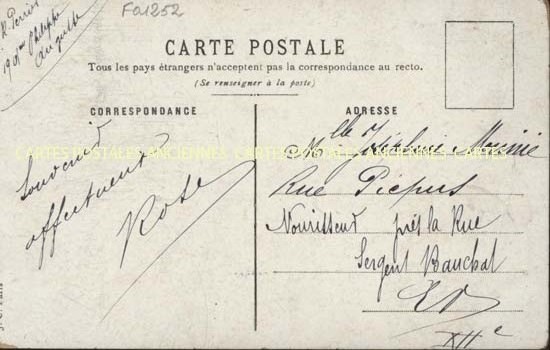 F01252
R. Perrier
190 Bd Philippe
Auguste
CARTE POSTALE
Tous les pays étrangers n'acceptent pas la correspondance au recto.
(Se renseigner à la poste)
CORRESPONDANCE
ADRESSE
CARTES POSTALES ANCIENNES CARTES POSTALES ANCIENNES
Souvenir
affectueux
Rose
Mlle Joséphine
Rue Picpus
Nourisseur près la Rue
Sergent Bauchat
EV
XIIe
J. C. Paris